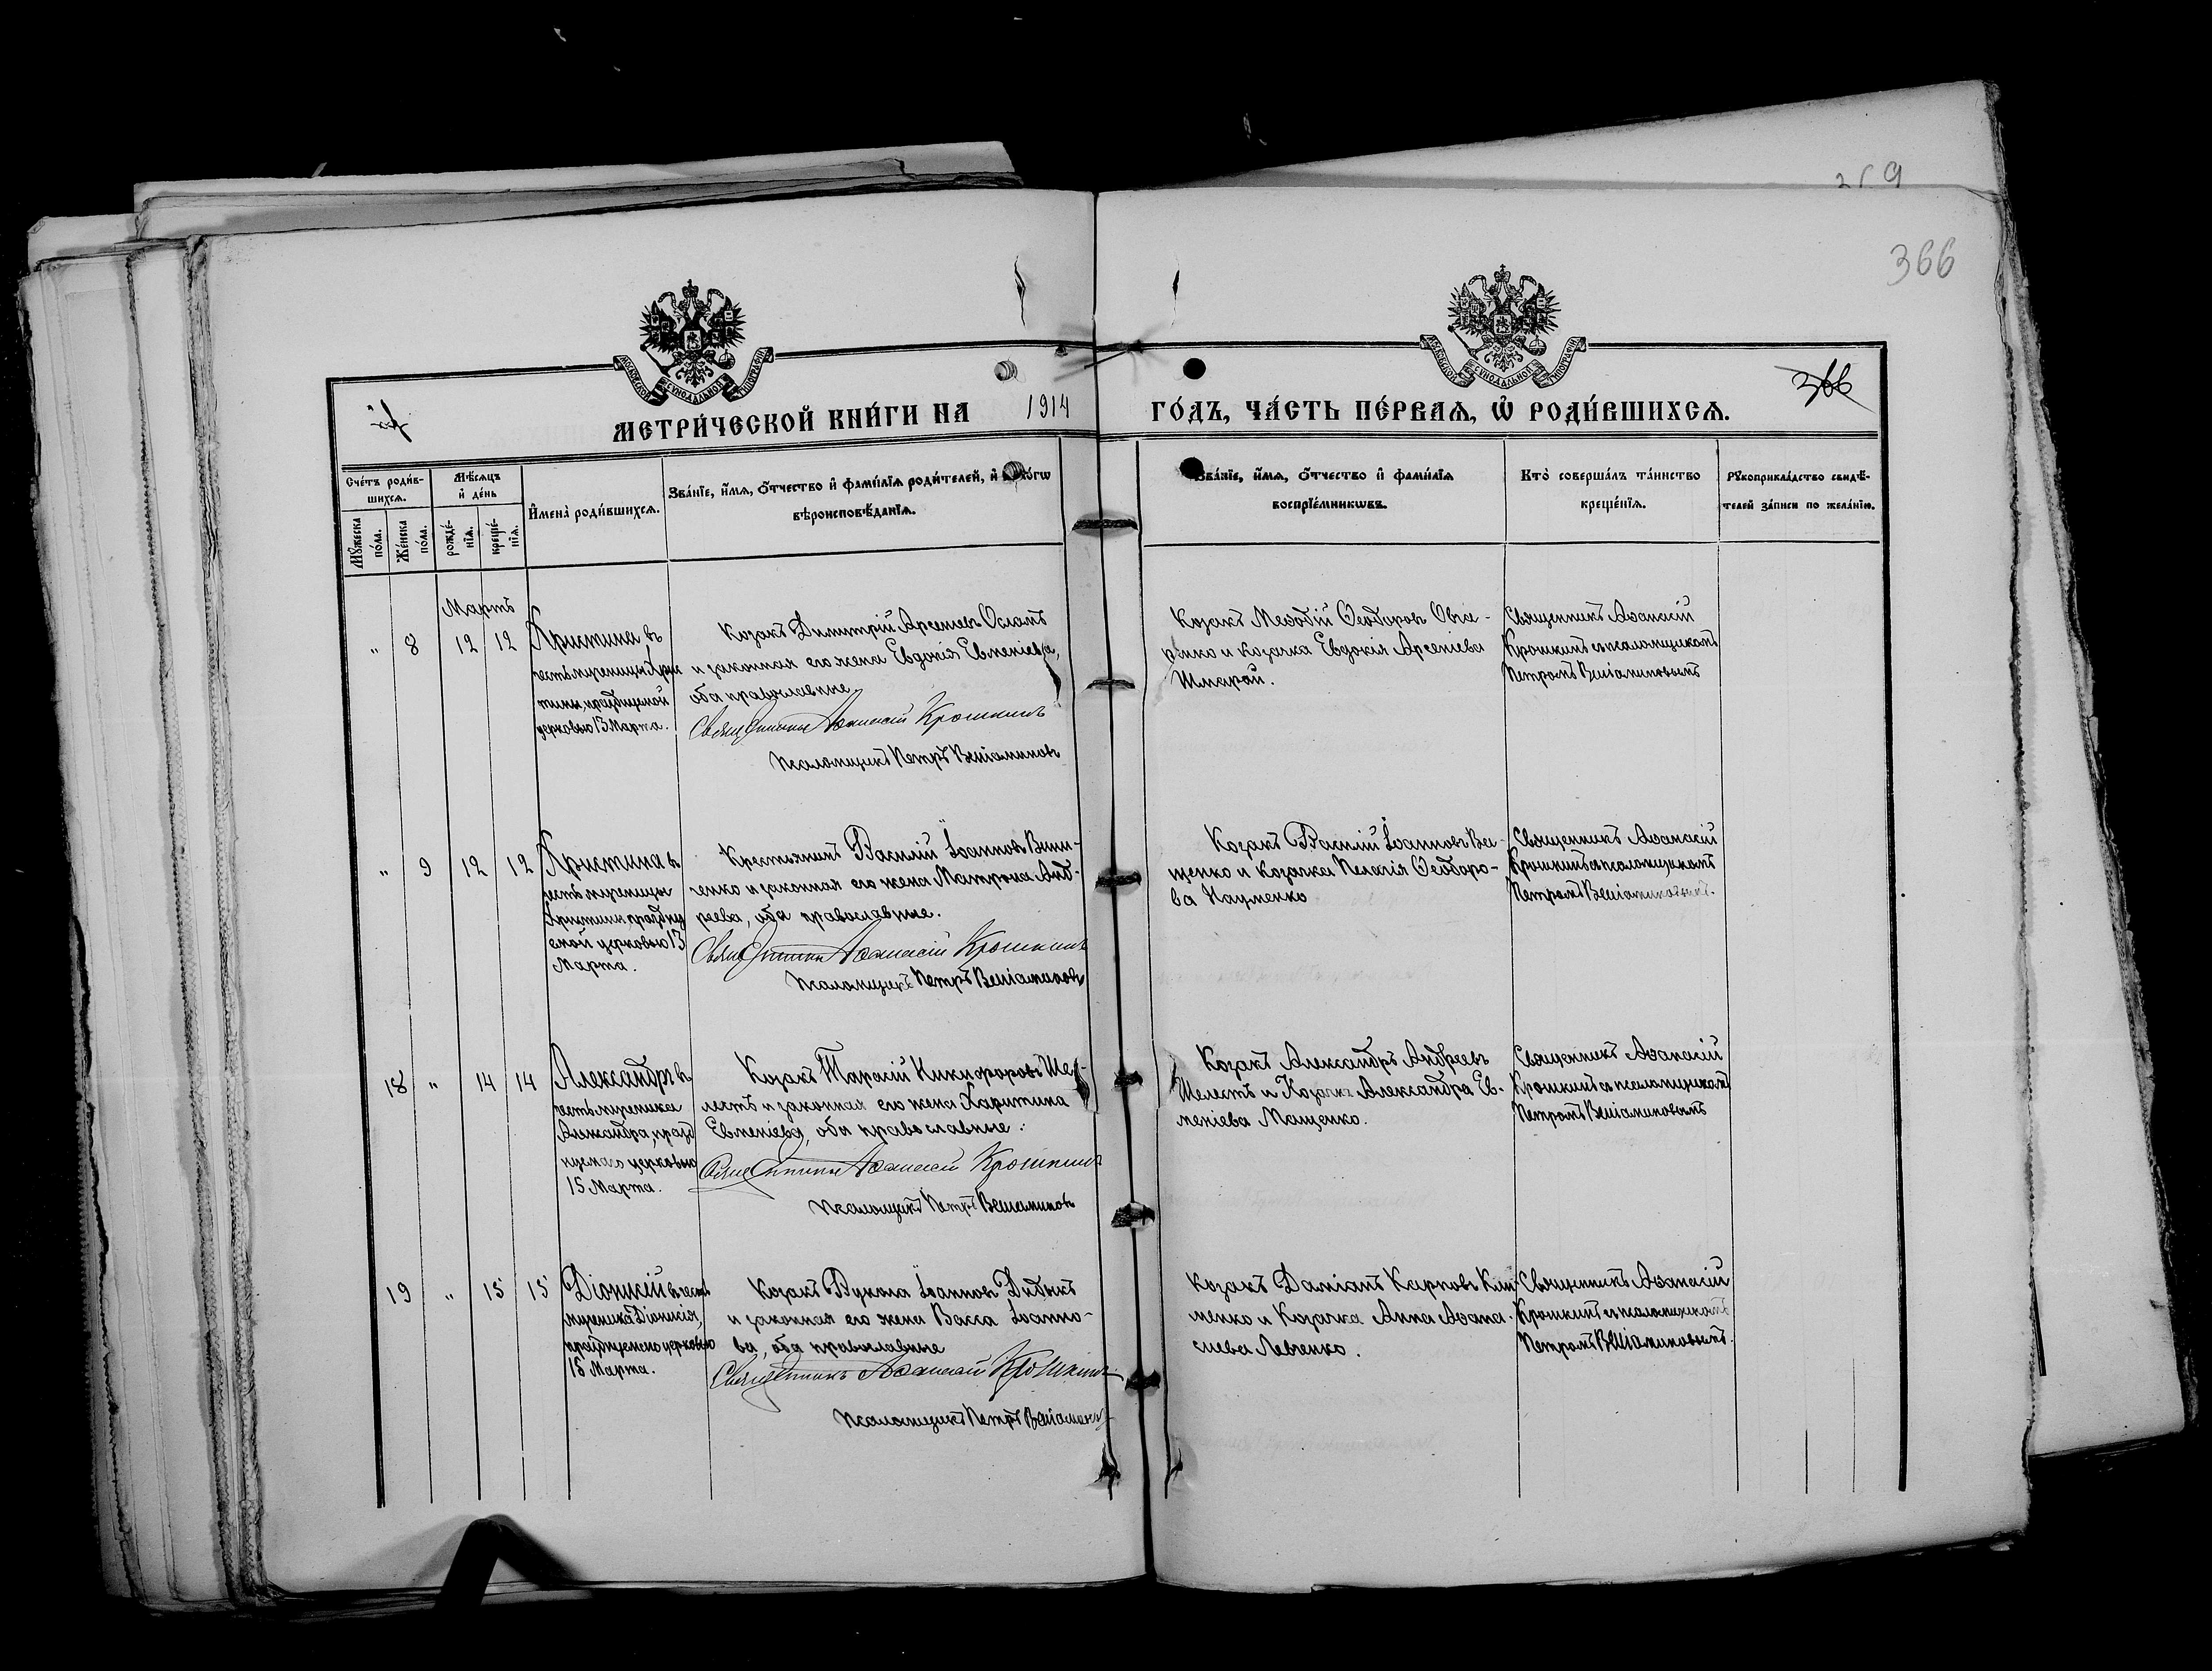 366
МОСКОВСКОЙ СѴНОДАЛЬНОЙ ТИПОГРАФІИ
МОСКОВСКОЙ СѴНОДАЛЬНОЙ ТИПОГРАФІИ
366
МЕТРИ́ЧЕСКОЙ КНИ́ГИ НА 1914 ГО́ДЪ, ЧА́СТЬ ПЕ́РВАѦ, Ѡ҆ РОДИ́ВШИХСѦ.
Сче́тъ роди́в-
шихсѧ.
Мꙋ́жеска по́ла.
Же́нска по́ла.
Мѣ́сѧцъ
и҆ де́нь
рожде́-
нїѧ.
креще́-
нїѧ.
И҆мена̀ роди́вшихсѧ.
Зва́нїе, и҆́мѧ, ѻ҆́тчество и҆ фами́лїѧ роди́телей, и҆
вѣроисповѣ́данїѧ.
Зва́нїе, и҆́мѧ, ѻ҆́тчество и҆ фами́лїѧ
воспрїе́мникѡвъ.
Кто̀ соверша́лъ та́инство
креще́нїѧ.
Рꙋкоприкла́дство свидѣ́-
телей за́писи по жела́нїю.
Мартъ
" 8 12 12
Христина въ
честь мученицы Хрис
тины, празднуемой
церковью 13 Марта.
Козакъ Димитрій Арсеніевъ Осламъ
и законная его жена Евдокія Евменіева,
оба православные.
Священникъ Аѳанасій Крошкинъ
Псаломщикъ Петръ Веніаминовъ
Козакъ Меѳодій Ѳеодоровъ Овча-
ренко и козачка Евдокія Арсеніева
Шмарай.
Священникъ Аѳанасій
Крошкинъ съ псаломщикомъ
Петромъ Веніаминовымъ
" 9 12 12
Христина въ
честь мученицы
Христины, праздну
емой церковью 13
Марта.
Крестьянинъ Василій Іоанновъ Вини-
ченко и законная его жена Матрона Анд-
реева, оба православные.
Священникъ Аѳанасій Крошкинъ
Псаломщикъ Петръ Веніаминовъ
Козакъ Василій Іоанновъ Ва-
щенко и козачка Пелагія Ѳеодоро-
ва Науменко
Священникъ Аѳанасій
Крошкинъ съ псаломщикомъ
Петромъ Веніаминовымъ.
18 " 14 14
Александръ въ
честь мученика
Александра, празд
нуемаго церковью
15 Марта.
Козакъ Тарасій Никифоровъ Ше-
лестъ и законная его жена Харитина
Евменіева, оба православные.
Священникъ Аѳанасій Крошкинъ
Псаломщикъ Петръ Веніаминовъ
Козакъ Александръ Андреевъ
Шелестъ и Козачка Александра Ев-
меніева Мащенко.
Священникъ Аѳанасій
Крошкинъ съ псаломщикомъ
Петромъ Веніаминовымъ
19 " 15 15
Діонисій въ честь
мученика Діонисія,
празднуемаго церковью
15 Марта.
Козакъ Вукола Іоанновъ Дидыкъ
и законная его жена Васса Іоанно-
ва, оба православные
Священникъ Аѳанасій Крошкинъ
Псаломщикъ Петръ Веніаминовъ
Козакъ Даміанъ Карповъ Кли-
менко и Козачка Анна Аѳана-
сиева Левченко.
Священникъ Аѳанасій
Крошкинъ съ псаломщикомъ
Петромъ Веніаминовымъ.